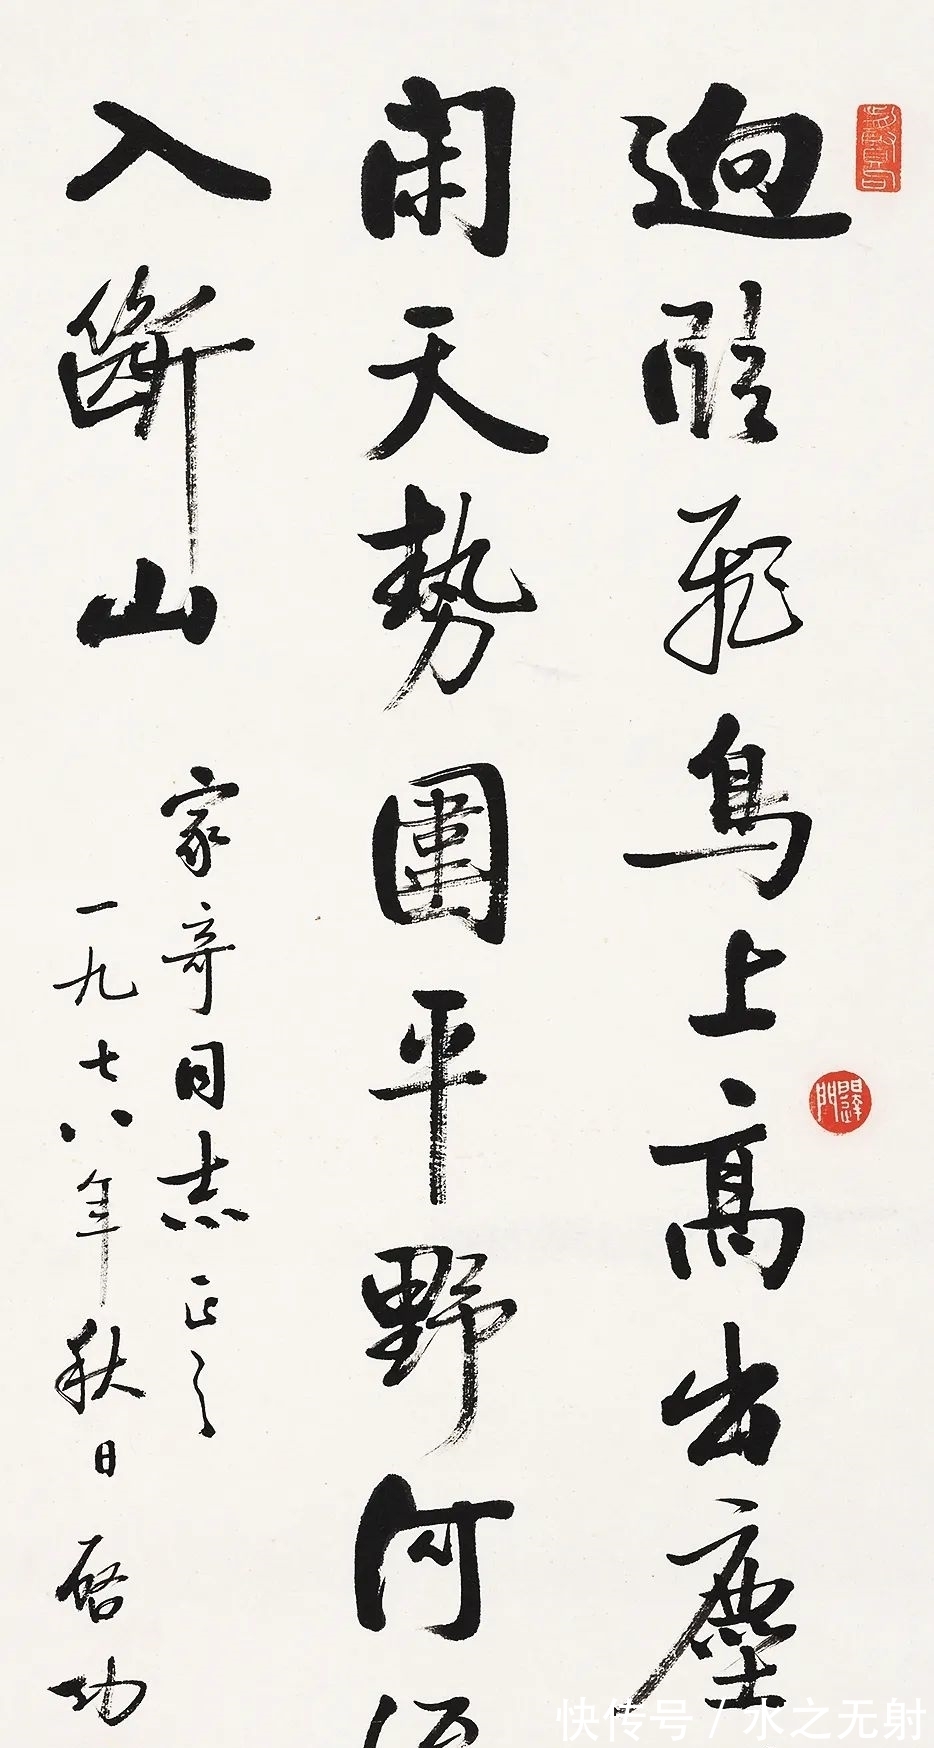 迥臨飛鳥上高出塵
閑天勢圍平野河
入斷山
家奇同志正之
一九七八年秋日 启功
快传号 / 水之无射